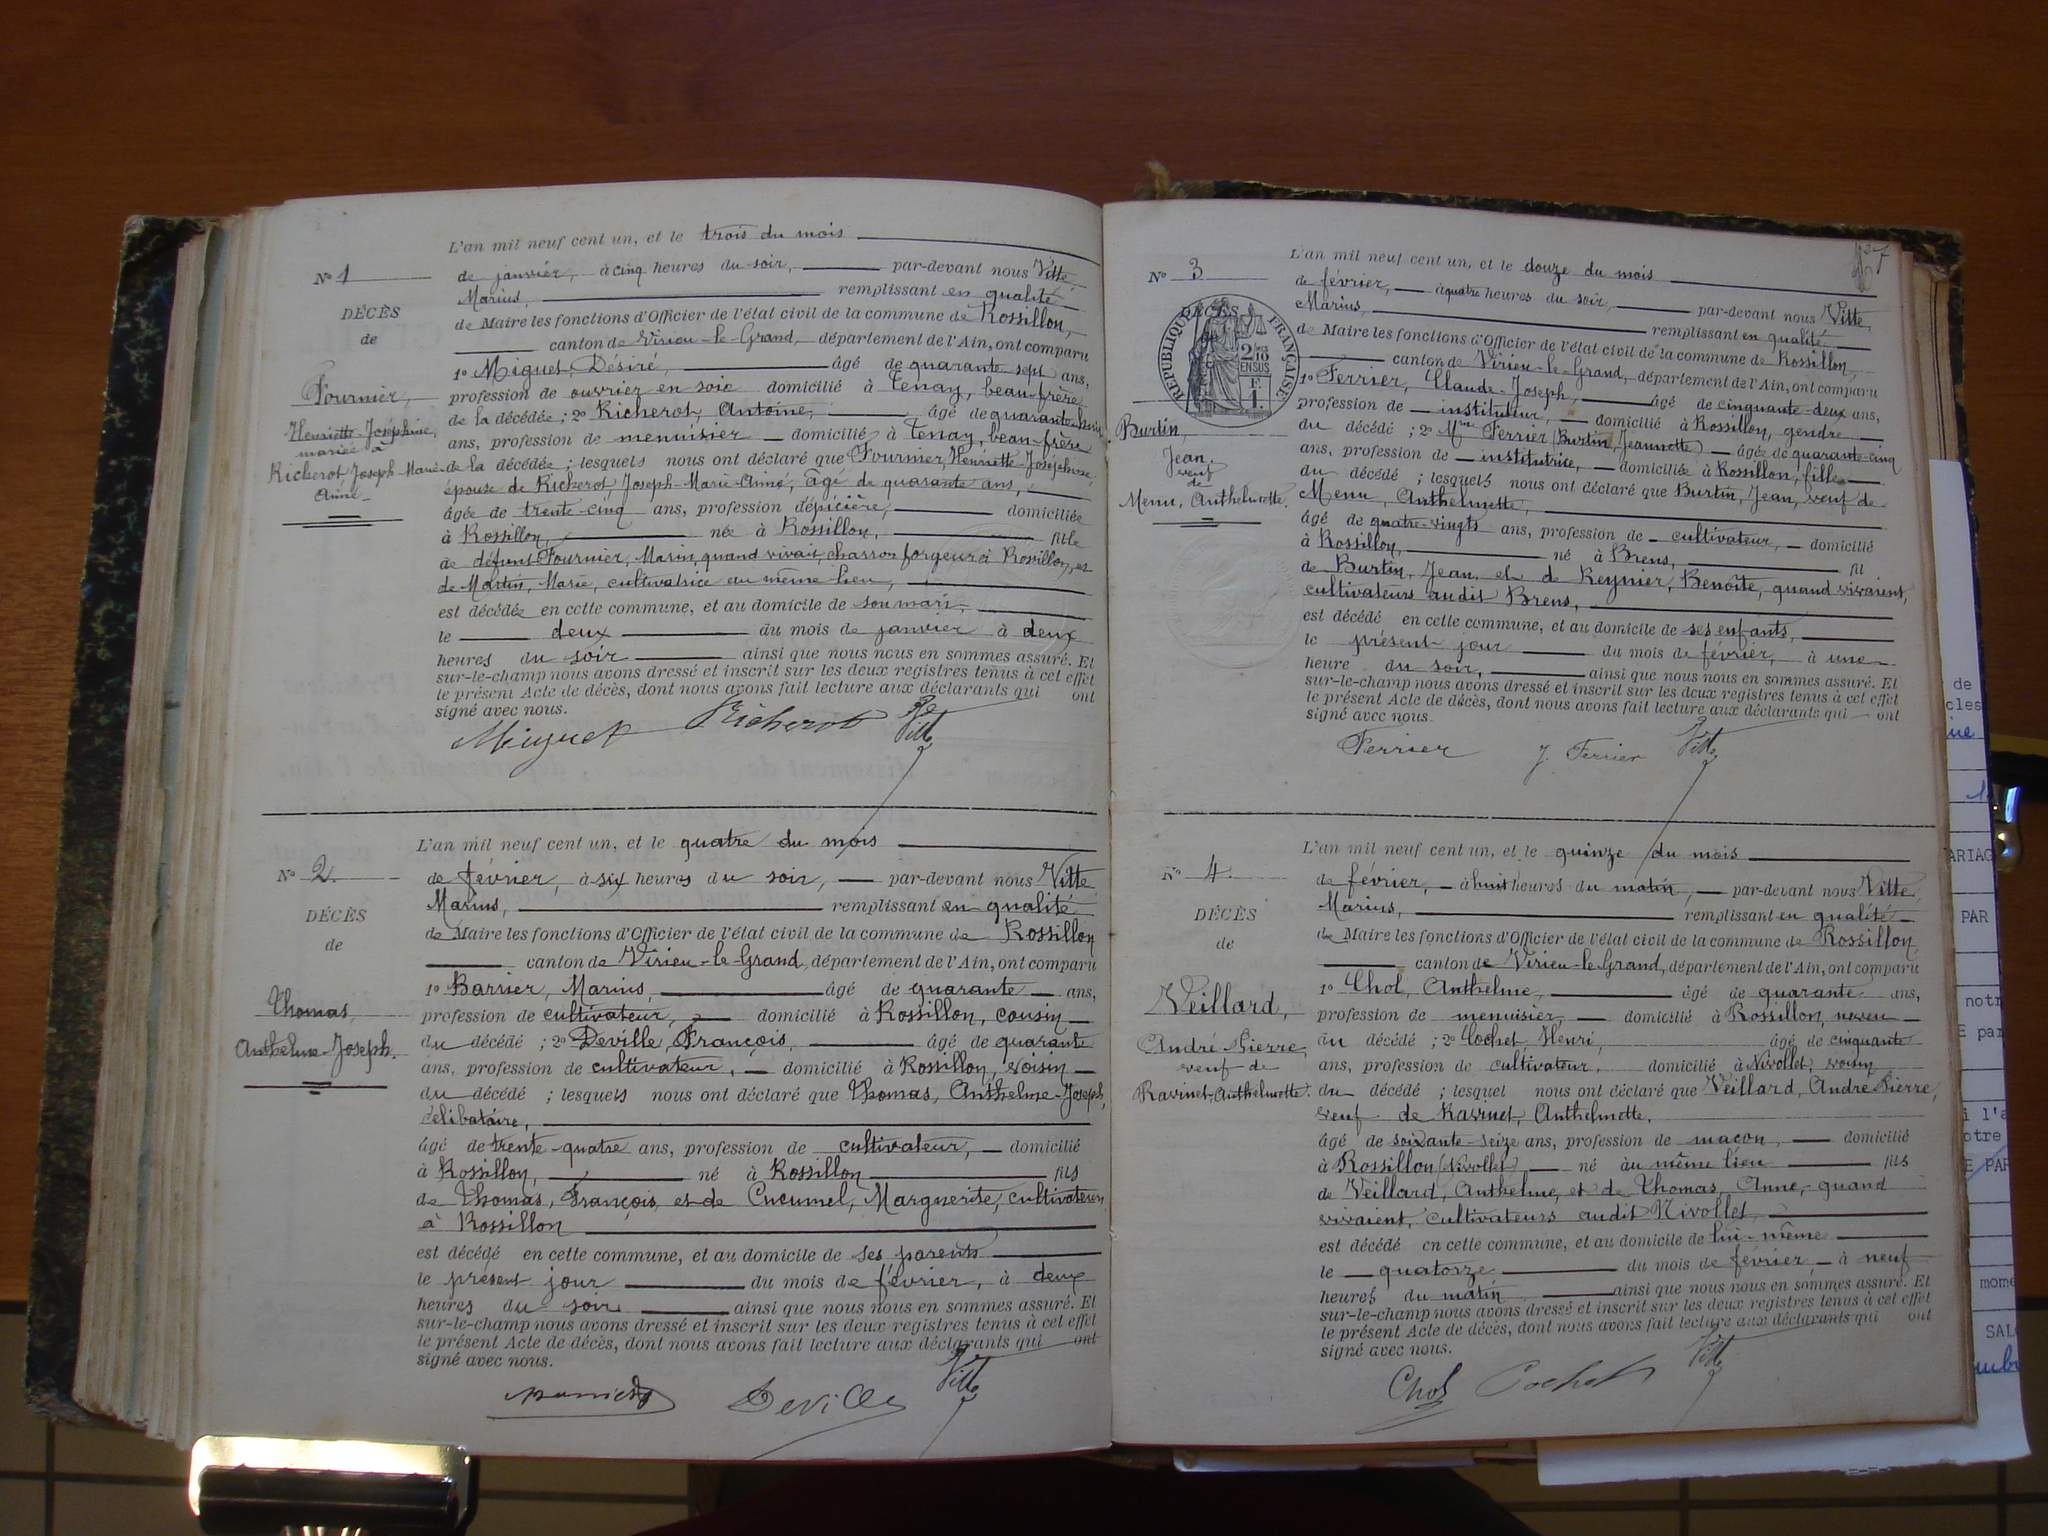 L'an mil neuf cent un, et le trois du mois
N° 1
de janvier, à cinq heures du soir, par-devant nous Vitte,
Marius, remplissant en qualité
DÉCÈS
de Maire les fonctions d'Officier de l'état civil de la commune de Rossillon,
de
canton de Virieu-le-Grand, département de l'Ain, ont comparu
1° Miguet, Désiré, âgé de quarante sept ans,
Fournier,
profession de ouvrier en soie domicilié à Tenay, beau-frère
de la décédée ; 2° Richerot, Antoine, âgé de quarante-huit
Henriette-Joséphine,
ans, profession de menuisier domicilié à Tenay, beau-frère
mariée à
Richerot, Joseph-Marie-
de la décédée ; lesquels nous ont déclaré que Fournier, Henriette-Joséphine,
Aimé
épouse de Richerot Joseph-Marie-Aimé, âgé de quarante ans,
âgée de trente-cinq ans, profession d'épicière, domiciliée
à Rossillon, née à Rossillon, fille
de défunt Fournier, Marin, quand vivait, charron forgeur à Rossillon, et
de Martin, Marie, cultivatrice au même lieu,
est décédée en cette commune, et au domicile de son mari,
le deux du mois de janvier à deux
heures du soir ainsi que nous nous en sommes assuré. Et
sur-le-champ nous avons dressé et inscrit sur les deux registres tenus à cet effet
le présent Acte de décès, dont nous avons fait lecture aux déclarants qui ont
signé avec nous.
Miguet Richerot Vitte
L'an mil neuf cent un, et le quatre du mois
N° 2.
de février, à six heures du soir, par-devant nous Vitte
Marius, remplissant en qualité
DÉCÈS
de Maire les fonctions d'Officier de l'état civil de la commune de Rossillon
de
canton de Virieu-le-Grand, département de l'Ain, ont comparu
1° Barrier, Marius, âgé de quarante ans,
Thomas,
profession de cultivateur, domicilié à Rossillon, cousin
Anthelme-Joseph.
du décédé ; 2° Deville, François, âgé de quarante
ans, profession de cultivateur, domicilié à Rossillon, voisin
du décédé ; lesquels nous ont déclaré que Thomas, Anthelme-Joseph,
célibataire,
âgé de trente-quatre ans, profession de cultivateur, domicilié
à Rossillon, né à Rossillon fils
de Thomas, François, et de Cucumel, Marguerite, cultivateurs
à Rossillon
est décédé en cette commune, et au domicile de ses parents
le présent jour du mois de février, à deux
heures du soir ainsi que nous nous en sommes assuré. Et
sur-le-champ nous avons dressé et inscrit sur les deux registres tenus à cet effet
le présent Acte de décès, dont nous avons fait lecture aux déclarants qui ont
signé avec nous.
Deville Vitte
L'an mil neuf cent un, et le douze du mois
N° 3
de février, à quatre heures du soir, par-devant nous Vitte,
Marius, remplissant en qualité
DÉCÈS
RÉPUBLIQUE FRANÇAISE
de Maire les fonctions d'Officier de l'état civil de la commune de Rossillon,
canton de Virieu-le-Grand, département de l'Ain, ont comparu
1° Ferrier, Claude-Joseph, âgé de cinquante-deux ans,
profession de instituteur, domicilié à Rossillon, gendre
Burtin,
du décédé ; 2° Mme Ferrier (Burtin, Jeannette) âgée de quarante-cinq
Jean
ans, profession de institutrice, domiciliée à Rossillon, fille
veuf
de
du décédé ; lesquels nous ont déclaré que Burtin, Jean, veuf de
Menu, Anthelmette.
Menu, Anthelmette,
âgé de quatre-vingts ans, profession de cultivateur, domicilié
à Rossillon, né à Brens, fil
de Burtin, Jean, et de Reynier, Benoîte, quand vivaient,
cultivateurs audit Brens,
est décédé en cette commune, et au domicile de ses enfants,
le présent jour du mois de février, à une
heure du soir, ainsi que nous nous en sommes assuré. Et
sur-le-champ nous avons dressé et inscrit sur les deux registres tenus à cet effet
le présent Acte de décès, dont nous avons fait lecture aux déclarants qui ont
signé avec nous.
Ferrier J. Ferrier Vitte
L'an mil neuf cent un, et le quinze du mois
N° 4.
de février, à huit heures du matin, par-devant nous Vitte,
Marius, remplissant en qualité
DÉCÈS
de Maire les fonctions d'Officier de l'état civil de la commune de Rossillon
de
canton de Virieu-le-Grand, département de l'Ain, ont comparu
1° Chol, Anthelme, âgé de quarante ans,
Veillard,
profession de menuisier, domicilié à Rossillon, neveu
André-Pierre,
du décédé ; 2° Cochet, Henri, âgé de cinquante
veuf de
ans, profession de cultivateur, domicilié à Nivollet, voisin
Ravinet, Anthelmette.
du décédé ; lesquel nous ont déclaré que Veillard, André-Pierre,
veuf de Ravinet, Anthelmette,
âgé de soixante-seize ans, profession de maçon, domicilié
à Rossillon (Nivollet), né au même lieu fils
de Veillard, Anthelme, et de Thomas, Anne, quand
vivaient, cultivateurs audit Nivollet,
est décédé en cette commune, et au domicile de lui-même
le quatorze du mois de février, à neuf
heures du matin ainsi que nous nous en sommes assuré. Et
sur-le-champ nous avons dressé et inscrit sur les deux registres tenus à cet effet
le présent Acte de décès, dont nous avons fait lecture aux déclarants qui ont
signé avec nous.
Chol Cochet Vitte